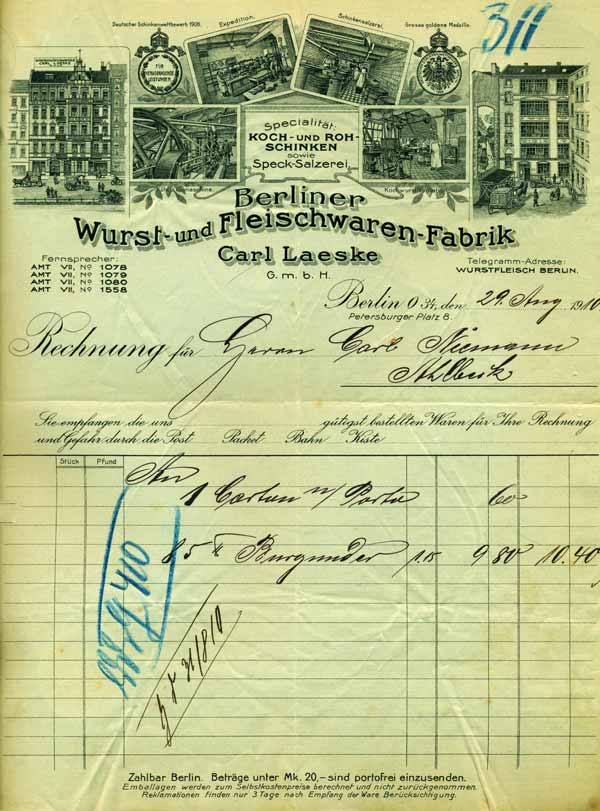 311
Deutscher Schinkenwettbewerb 1908.
Expedition.
Schinkensalzerei.
Grosse goldene Medaille.
FÜR HERVORRAGENDE LEISTUNGEN
CARL LAESKE
Specialität:
KOCH- UND ROH-
SCHINKEN
sowie
Speck-Salzerei.
Berliner
Wurst- und Fleischwaren-Fabrik
Carl Laeske
G. m. b. H.
Fernsprecher:
AMT VII, No 1078
AMT VII, No 1079
AMT VII, No 1080
AMT VII, No 1558
Telegramm-Adresse:
WURSTFLEISCH BERLIN.
Berlin O. 34, den 29. Aug 1910
Petersburger Platz 8.
Rechnung für Herrn Carl Niemann
Ahlbeck
Sie empfangen die uns gütigst bestellten Waren für Ihre Rechnung
und Gefahr durch die Post Packet Bahn Kiste
Stück Pfund
An
1 Carton n/ Porto 60
85 Burgunder 1.15 9 80 10.40
31/8 10
Zahlbar Berlin. Beträge unter Mk. 20,- sind portofrei einzusenden.
Emballagen werden zum Selbstkostenpreise berechnet und nicht zurückgenommen.
Reklamationen finden nur 3 Tage nach Empfang der Ware Berücksichtigung.